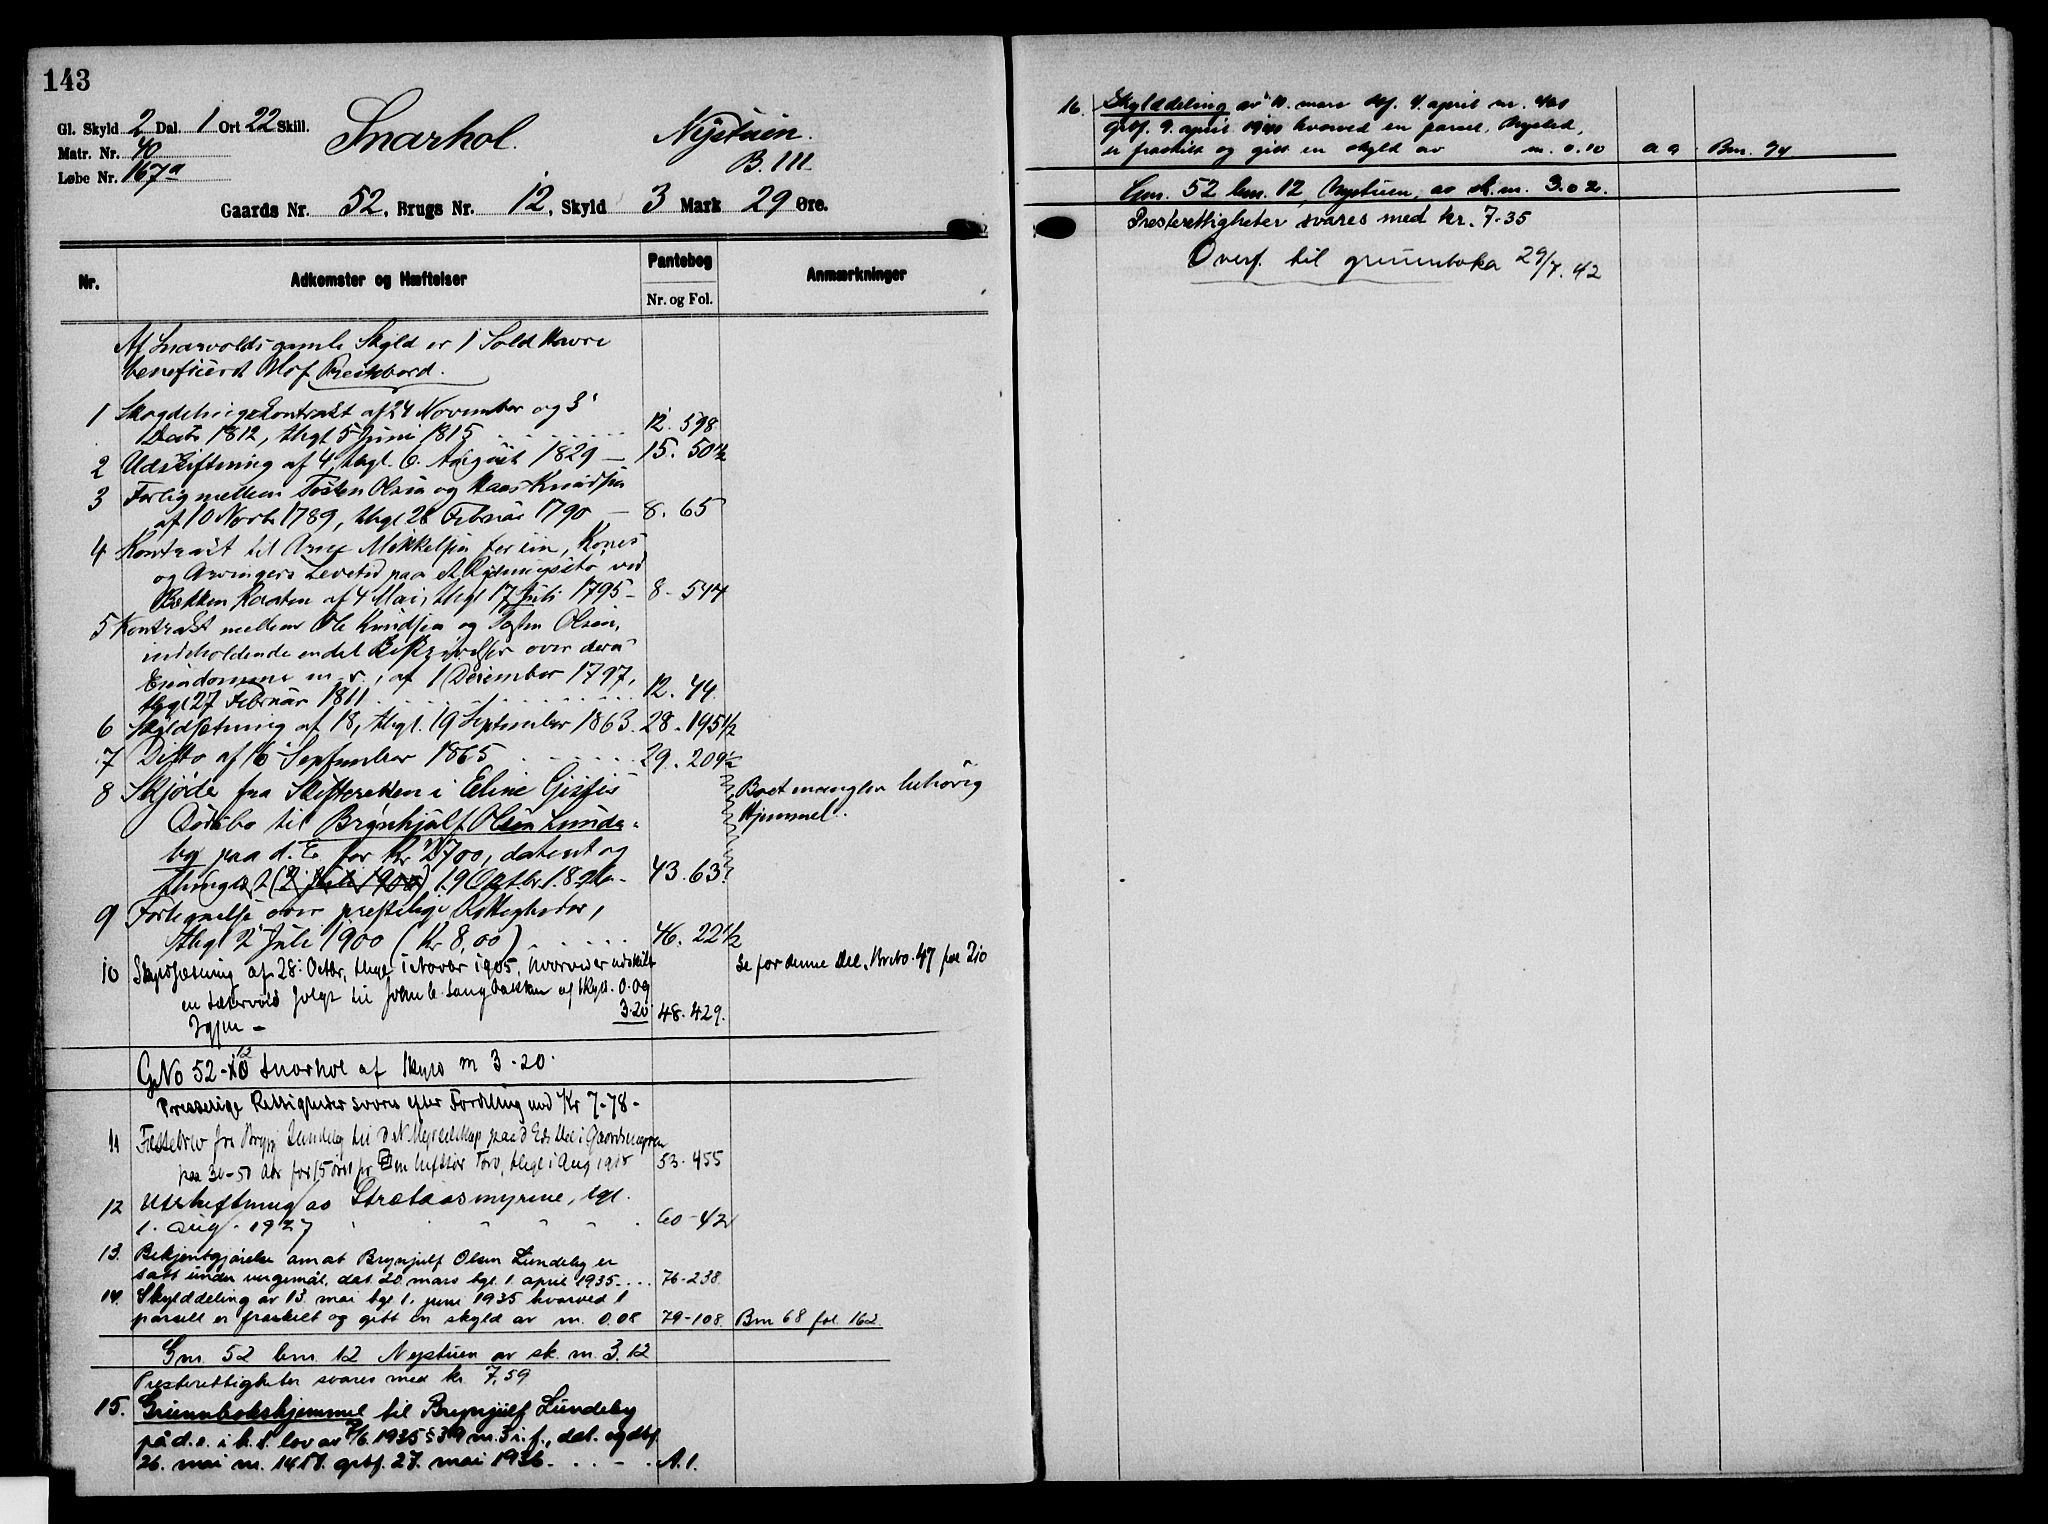 143
Gl. Skyld 2 Dal. 1 Ort 22 Skill.
Matr. Nr. 40
Løbe Nr. 167a
Snarhol.
Nystuen.
B. III
Gaards Nr. 52, Brugs Nr. 12, Skyld 3 Mark 29 Øre.
Nr.
Adkomster og Hæftelser
Pantebog
Nr. og Fol.
Anmærkninger
Af Snarvolds gamle Skyld er 1 Sold Havre
beneficeret Hof
1 Skogdelingskontrakt af 24 November og 3'
Dets 1812, thgl 5 Juni 1815 12. 598
2 Udskiftning af 4, thgl. 6. August 1829 — 15. 50 1/2
3 Forlig mellem Tosten Olsen og Hans Knudsen
af 10 Novbr 1789, thgl 26 Februar 1790 — 8. 65
4 Kontrakt til Arne Mikkelsen for sin, Kones
og Arvingers Levetid paa et Rydningssted ved
Bekken af 4 Mai, thgl 17 Juli 1795 - 8 - 544
5 Kontrakt mellem Ole Knudsen og Tosten Olsen,
indeholdende endel over deres
Eiendomme m. v., af 1 December 1797,
thgl 27 Februar 1811 12. 44.
6 Skyldsetning af 18, thgl. 19 September 1863. 28 - 195 1/2
7 Ditto af 16 September 1865 29. 209 1/2
8 Skjøde fra Skifteretten i Eline
Dødsbo til Brynhjulf Olsen Lunde-
by paa d. E. for Kr 2700, dateret og
thinglæst (2 Juli 1900) 19 Octbr. 43. 63
Boet mangler behørig
Hjemmel.
9 Fortegnelse over prestelige Rettigheder,
thgl 2 Juli 1900 (Kr 8,00) 46. 22 1/2
10 Skyldsætning af 28: Octbr, thgl 1 Novbr 1905, hvorved er udskilt
en Sætervold solgt til John C. Langbakken af Skyld. 0.09
Igjen — 3.20 48. 429.
Se for denne Del, Brno. 47 fol 210
GNo 52-10 12 Snarhol af Skyld m 3-20.
Presteelige Rettigheder svares efter Fordeling med Kr 7-78-
11 Fæstebrev fra Brynj Lundeby til D N Myrselskap paa d Eds Del i
paa 30-50 Aar for 15 øre pr lufttør Torv, thgl 1 Aug 53. 455
12 Utskiftning av Strætaasmyrene, tgl.
1. aug. 1927 60-42
13. Bekjentgjørelse om at Brynjulf Olsen Lundeby er
satt under vergemål, dat. 20. mars tgl. 1. april 1935 76-238
14. Skylddeling av 13. mai tgl 1. juni 1935 hvorved 1
parsell er fraskilt og gitt en skyld av m. 0.08 79-108. Bnr 68 fol. 162.
Gnr. 52 bnr. 12 Nystuen av sk. m. 3.12
Presterettigheter svares med kr. 7,59
15. Grunnbokshjemmel til Brynjulf Lundeby
på d.e. i h.t. lov av 7/6 1935 § 39 nr. 3 i.f., dat. og dbf.
26. mai nr. 1417. grbf. 27. mai 1936 A. 1.
16. Skylddeling av 11. mars dbf. 4. april nr.
grbf. 9. april 1940 hvorved en parsel, Nysted,
er fraskilt og gitt en skyld av m. 0.10 a a Bnr. 74
Gnr. 52 bnr. 12, Nystuen, av sk.m. 3.02.
Presterettigheter svares med kr. 7-35
Overf. til grunnboka 29/7.42